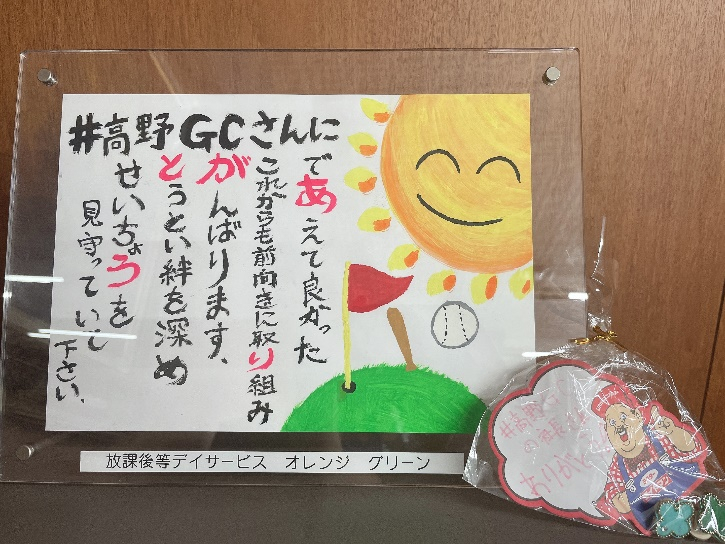 #高野GCさんに
であえて良かった
これからも前向きに取り組み
がんばります、
とうとい絆を深め
せいちょろを
見守っていて
下さい、
放課後等デイサービス オレンジ グリーン
#高野GC
の
ありがとう